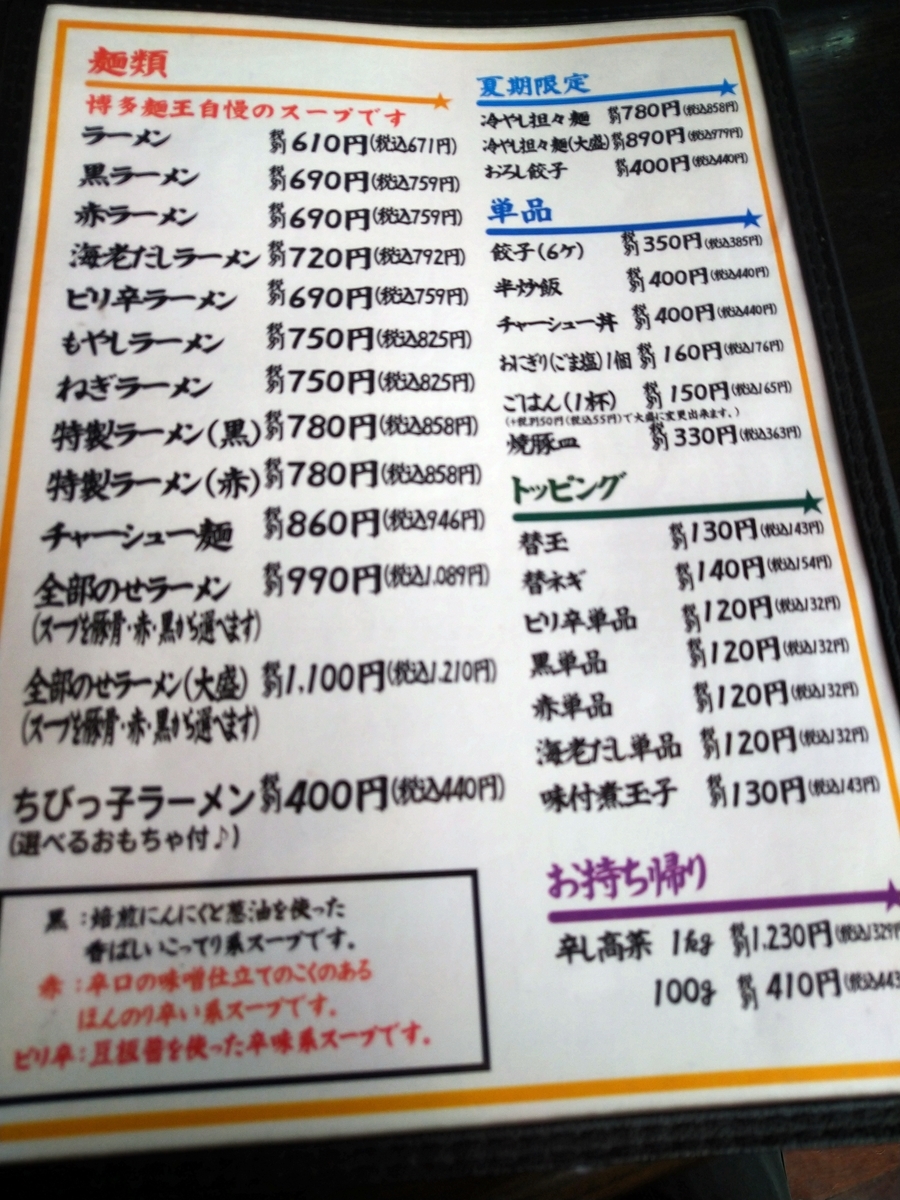 麺類
博多麺王自慢のスープです
ラーメン 税別610円(税込671円)
黒ラーメン 税別690円(税込759円)
赤ラーメン 税別690円(税込759円)
海老だしラーメン 税別720円(税込792円)
ピリ辛ラーメン 税別690円(税込759円)
もやしラーメン 税別750円(税込825円)
ねぎラーメン 税別750円(税込825円)
特製ラーメン(黒) 税別780円(税込858円)
特製ラーメン(赤) 税別780円(税込858円)
チャーシュー麺 税別860円(税込946円)
全部のせラーメン 税別990円(税込1.089円)
(スープを豚骨・赤・黒から選べます)
全部のせラーメン(大盛) 税別1,100円(税込1.210円)
(スープを豚骨・赤・黒から選べます)
ちびっ子ラーメン 税別400円(税込440円)
(選べるおもちゃ付♪)
黒:焙煎にんにくと葱油を使った
香ばしいこってり系スープです。
赤:辛口の味噌仕立てのこくのある
ほんのり辛い系スープです。
ピリ辛:豆板醤を使った辛味系スープです。
夏期限定
冷やし担々麺 税別780円(税込858円)
冷やし担々麺(大盛) 税別890円(税込979円)
おろし餃子 税別400円(税込440円)
単品
餃子(6ケ) 税別350円(税込385円)
半炒飯 税別400円(税込440円)
チャーシュー丼 税別400円(税込440円)
おにぎり(ごま塩)1個 税別160円(税込176円)
ごはん(1杯) 税別150円(税込165円)
(+税別50円(税込55円)で大盛に変更出来ます。)
焼豚皿 税別330円(税込363円)
トッピング
替玉 税別130円(税込143円)
替ネギ 税別140円(税込154円)
ピリ辛単品 税別120円(税込132円)
黒単品 税別120円(税込132円)
赤単品 税別120円(税込132円)
海老だし単品 税別120円(税込132円)
味付煮玉子 税別130円(税込143円)
お持ち帰り
辛し高菜 1kg 税別1,230円(税込1329円
100g 税別410円(税込443